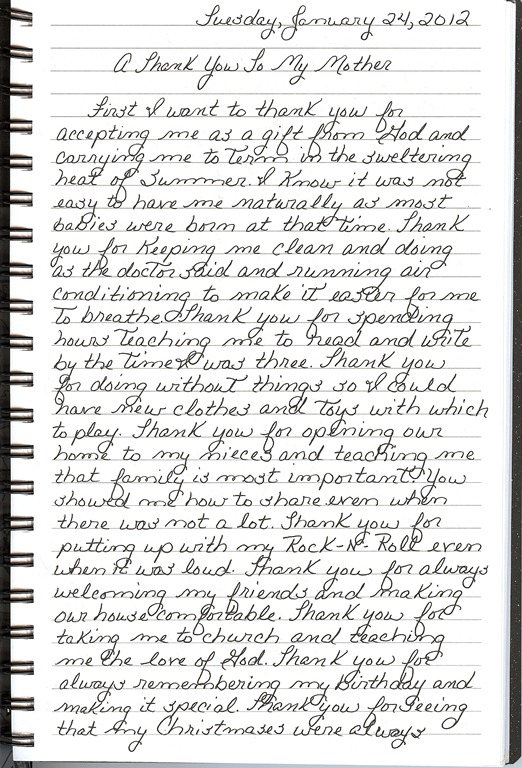 Tuesday, January 24, 2012
A Thank You To My Mother
First I want to thank you for
accepting me as a gift from God and
carrying me to Term in the sweltering
heat of Summer. I Know it was not
easy to have me naturally as most
babies were born at that Time. Thank
you for Keeping me clean and doing
as the doctor said and running air
conditioning to make it easier for me
To breathe. Thank you for spending
hours Teaching me to read and write
by the Time I was three. Thank you
for doing without things so I could
have new clothes and Toys with which
to play. Thank you for opening our
home to my nieces and teaching me
that family is most important! You
showed me how to share even when
there was not a lot. Thank you for
putting up with my Rock-N-Roll even
when it was loud. Thank you for always
welcoming my friends and making
our house comfortable. Thank you for
taking me to church and teaching
me the love of God. Thank you for
always remembering my Birthday and
making it special. Thank you for seeing
that my Christmases were always